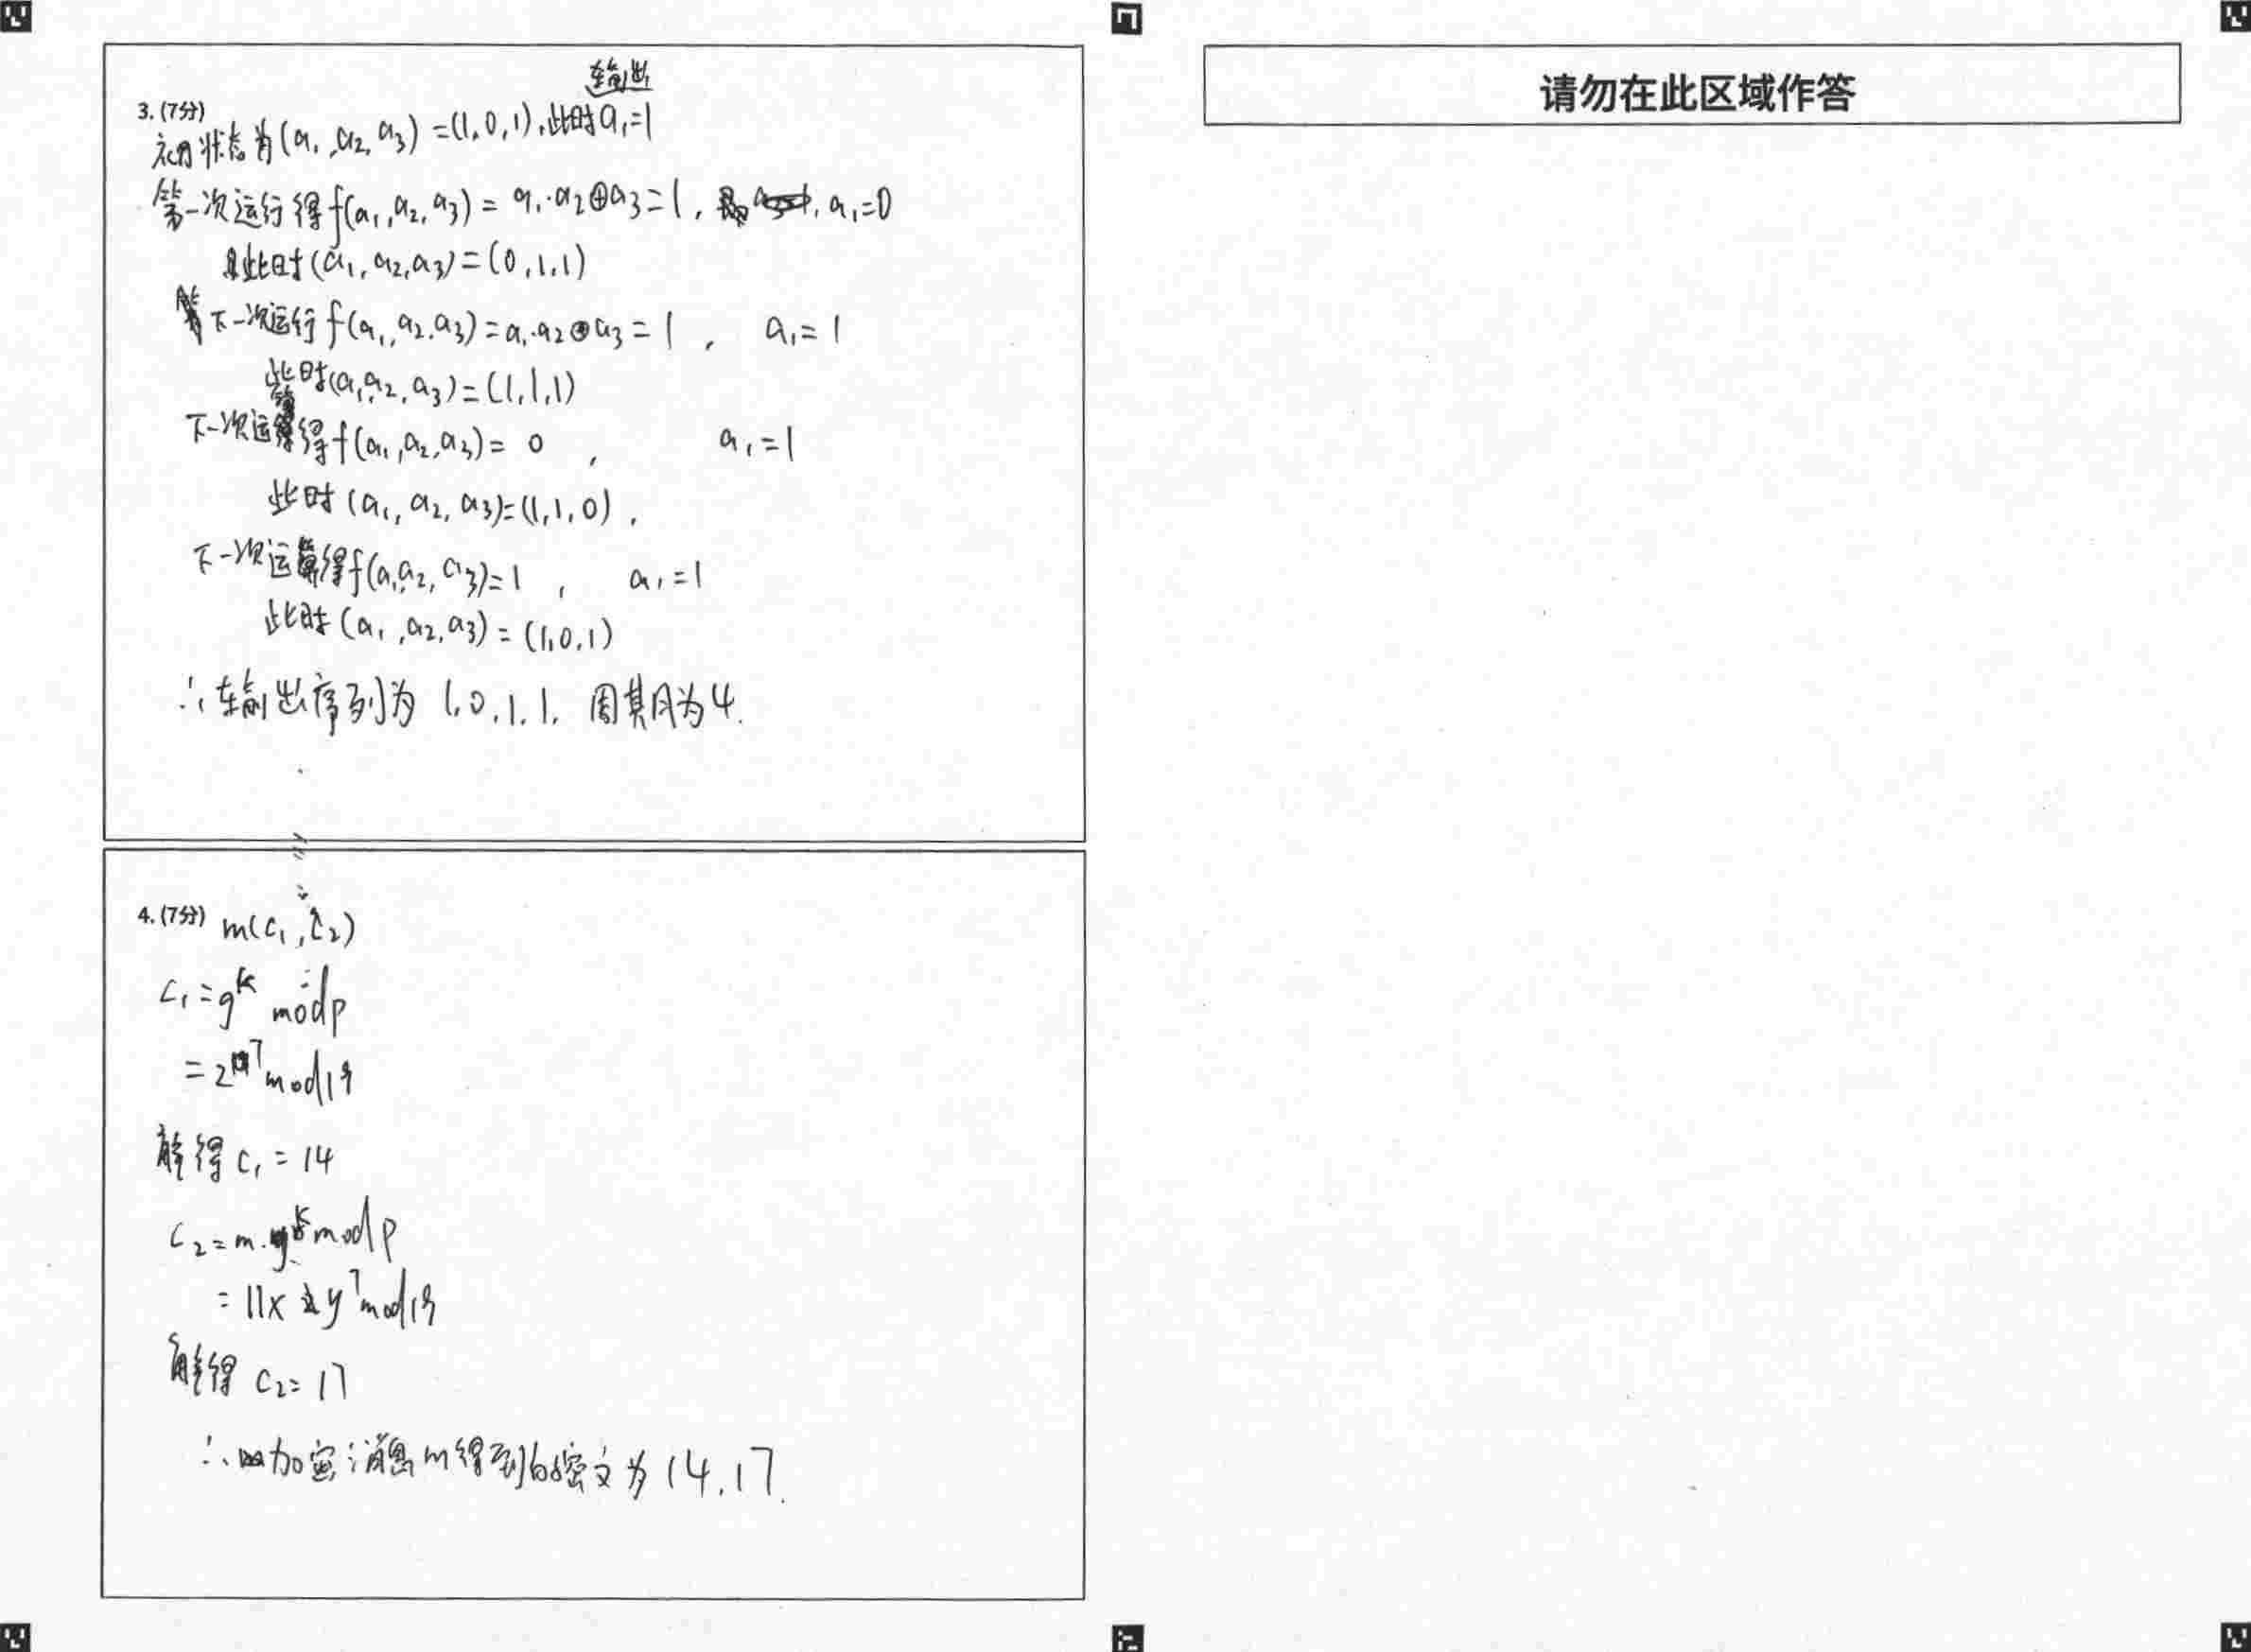 请勿在此区域作答
输出
3. (7分)
初始状态为(a₁,a₂,a₃)=(1,0,1),此时a₁=1
第一次运行得f(a₁,a₂,a₃)=a₁·a₂⊕a₃=1, a₁=0
此时(a₁,a₂,a₃)=(0,1,1)
下一次运行f(a₁,a₂,a₃)=a₁·a₂⊕a₃=1, a₁=1
此时(a₁,a₂,a₃)=(1,1,1)
下一次运算得f(a₁,a₂,a₃)=0, a₁=1
此时(a₁,a₂,a₃)=(1,1,0),
下一次运算得f(a₁,a₂,a₃)=1, a₁=1
此时(a₁,a₂,a₃)=(1,0,1)
∴输出序列为 1,0,1,1, 周期为4.
4. (7分) m(c₁,c₂)
c₁=g^k mod p
=2^7 mod 19
解得 c₁=14
c₂=m·y^k mod p
=11×y^7 mod 19
解得 c₂=17
∴加密消息m得到的密文为 14,17.